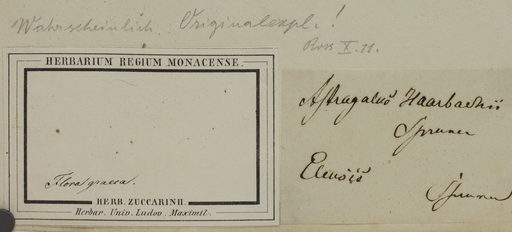 Wahrscheinlich Originalexpl.!
Ross X. 11.
HERBARIUM REGIUM MONACENSE.
Flora graeca.
HERB. ZUCCARINII.
Herbar. Univ. Ludov. Maximil.
Astragalus Haarbachii
Spruner
Eleusis
Spruner